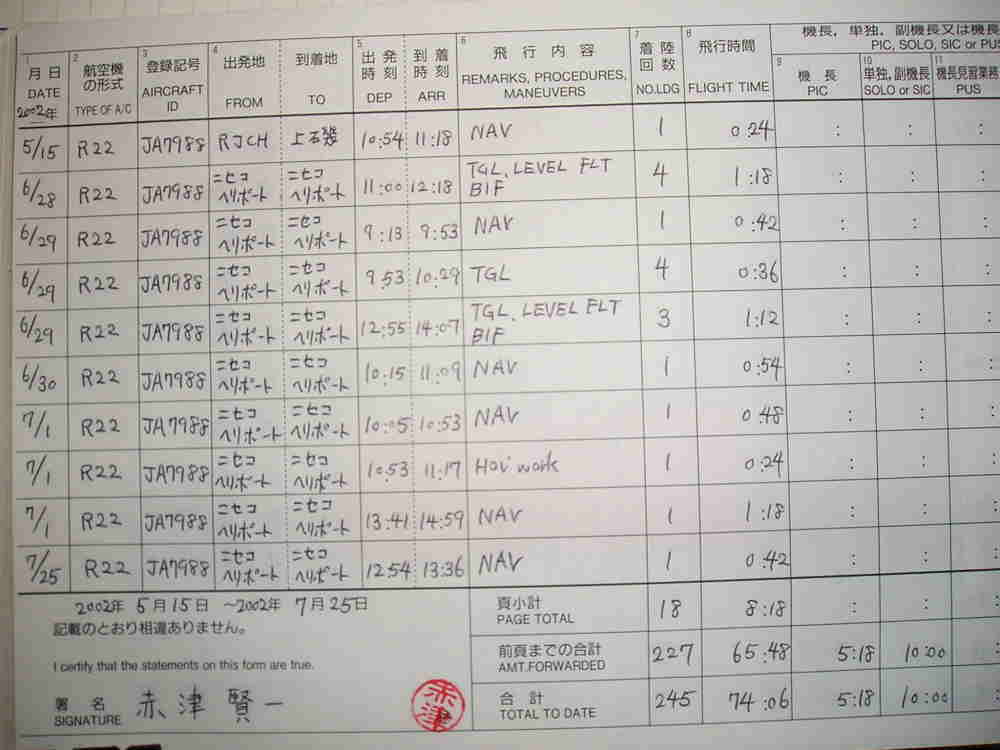 機長，単独，副機長又は機長
PIC, SOLO, SIC or PUS
1 月日 DATE 2002年
2 航空機の形式 TYPE OF A/C
3 登録記号 AIRCRAFT ID
4 出発地 FROM 到着地 TO
5 出発時刻 DEP 到着時刻 ARR
6 飛行内容 REMARKS, PROCEDURES, MANEUVERS
7 着陸回数 NO.LDG
8 飛行時間 FLIGHT TIME
9 機長 PIC
10 単独,副機長 SOLO or SIC
11 機長見習業務 PUS
5/15 R22 JA7988 RJCH 上石幾 10:54 11:18 NAV 1 0:24 : : :
6/28 R22 JA7988 ニセコヘリポート ニセコヘリポート 11:00 12:18 TGL, LEVEL FLT BIF 4 1:18 : : :
6/29 R22 JA7988 ニセコヘリポート ニセコヘリポート 9:13 9:53 NAV 1 0:42 : : :
6/29 R22 JA7988 ニセコヘリポート ニセコヘリポート 9:53 10:29 TGL 4 0:36 : : :
6/29 R22 JA7988 ニセコヘリポート ニセコヘリポート 12:55 14:07 TGL, LEVEL FLT BIF 3 1:12 : : :
6/30 R22 JA7988 ニセコヘリポート ニセコヘリポート 10:15 11:09 NAV 1 0:54 : : :
7/1 R22 JA7988 ニセコヘリポート ニセコヘリポート 10:05 10:53 NAV 1 0:48 : : :
7/1 R22 JA7988 ニセコヘリポート ニセコヘリポート 10:53 11:17 Hov work 1 0:24 : : :
7/1 R22 JA7988 ニセコヘリポート ニセコヘリポート 13:41 14:59 NAV 1 1:18 : : :
7/25 R22 JA7988 ニセコヘリポート ニセコヘリポート 12:54 13:36 NAV 1 0:42 : : :
2002年 5月15日 ～2002年 7月25日
記載のとおり相違ありません。
I certify that the statements on this form are true.
署名 SIGNATURE 赤津賢一
赤津
頁小計 PAGE TOTAL 18 8:18 : : :
前頁までの合計 AMT.FORWARDED 227 65:48 5:18 10:00
合計 TOTAL TO DATE 245 74:06 5:18 10:00